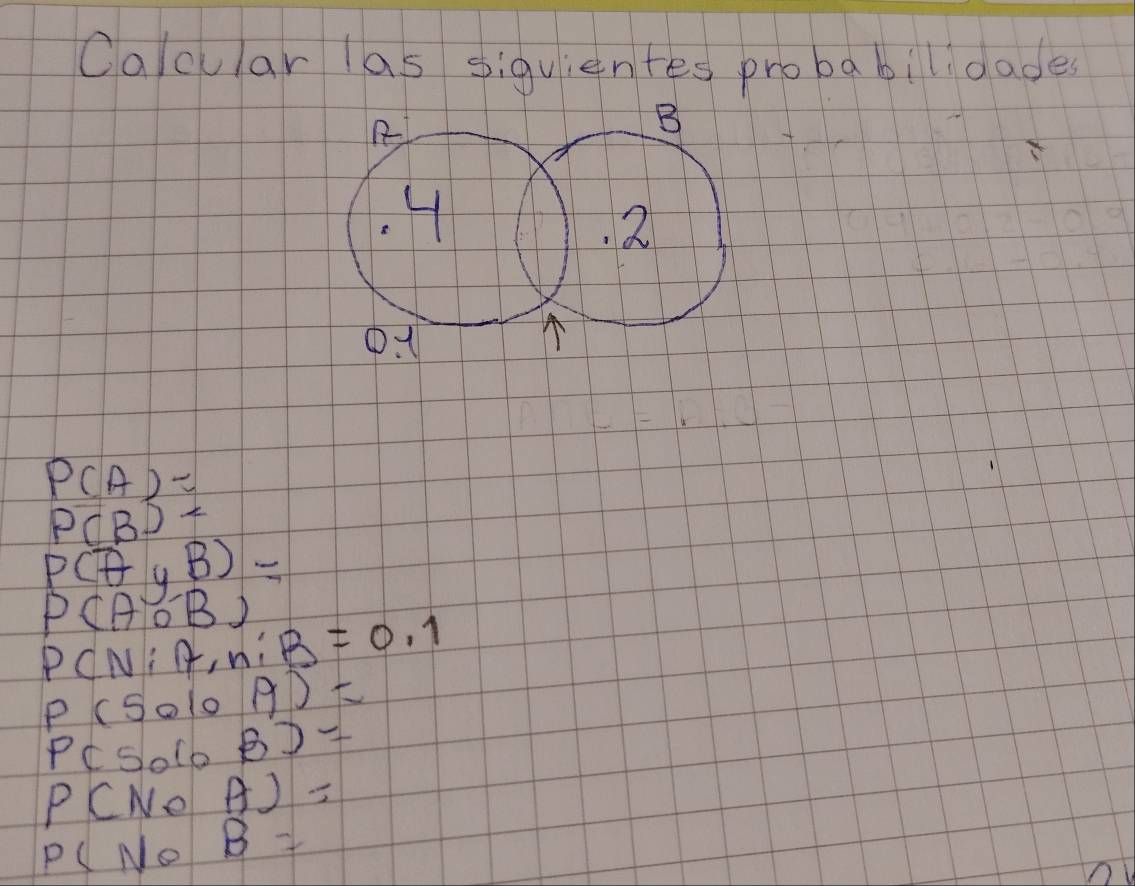 Calcular las siguientes probabilidades
A B
.4 .2
0.1
P(A)=
P(B)=
P(A y B)=
P(A o B)
P(Ni A, ni B = 0.1
P(Solo A)=
P(Solo B)=
P(No A)=
P(No B=